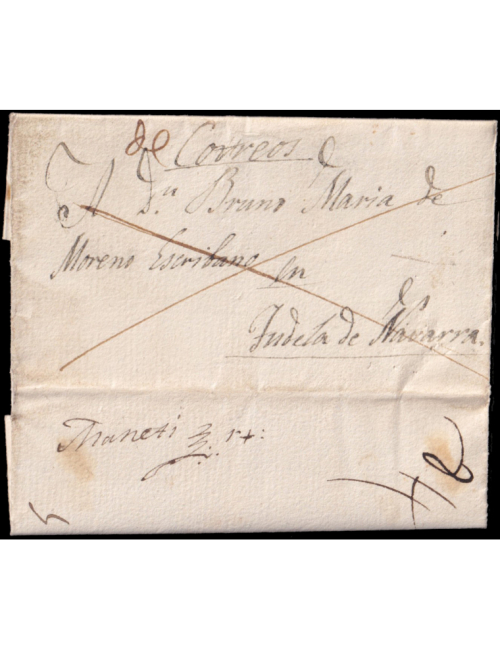 de Correos
A Dn Bruno Maria de
Moreno Escribano en
Tudela de Navarra.